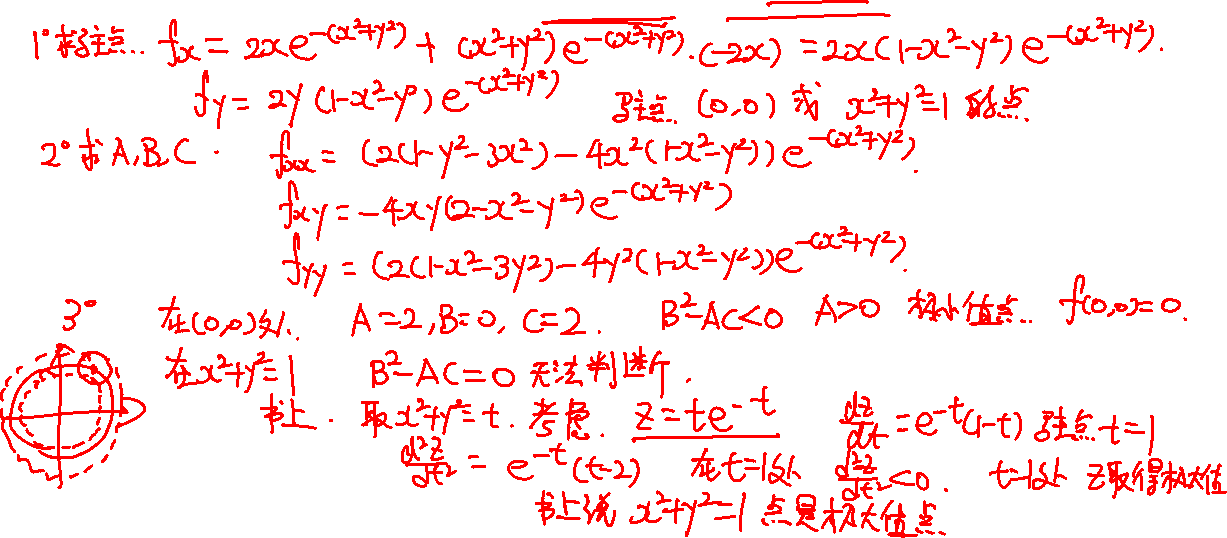 1° 求驻点.. fx = 2xe^-(x²+y²) + (x²+y²)e^-(x²+y²)·(-2x) = 2x(1-x²-y²)e^-(x²+y²).
fy = 2y(1-x²-y²)e^-(x²+y²) 驻点. (0,0) 或 x²+y²=1 的点.
2° 求A,B,C. fxx = (2(1-y²-3x²)-4x²(1-x²-y²))e^-(x²+y²).
fxy = -4xy(2-x²-y²)e^-(x²+y²)
fyy = (2(1-x²-3y²)-4y²(1-x²-y²))e^-(x²+y²).
3° 在(0,0)处. A=2, B=0, C=2. B²-AC<0 A>0 极小值点.. f(0,0)=0.
在x²+y²=1 B²-AC=0 无法判断.
书上. 取x²+y²=t. 考虑. z=te^-t dz/dt = e^-t(1-t) 驻点t=1
d²z/dt² = e^-t(t-2) 在t=1处 d²z/dt²<0. t=1处 z取得极大值
书上说 x²+y²=1 点是极大值点.